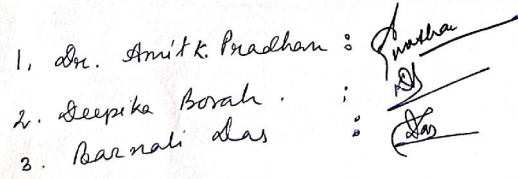 1. Dr. Amit K. Pradhan :
2. Deepika Borah. :
3. Barnali Das : Das